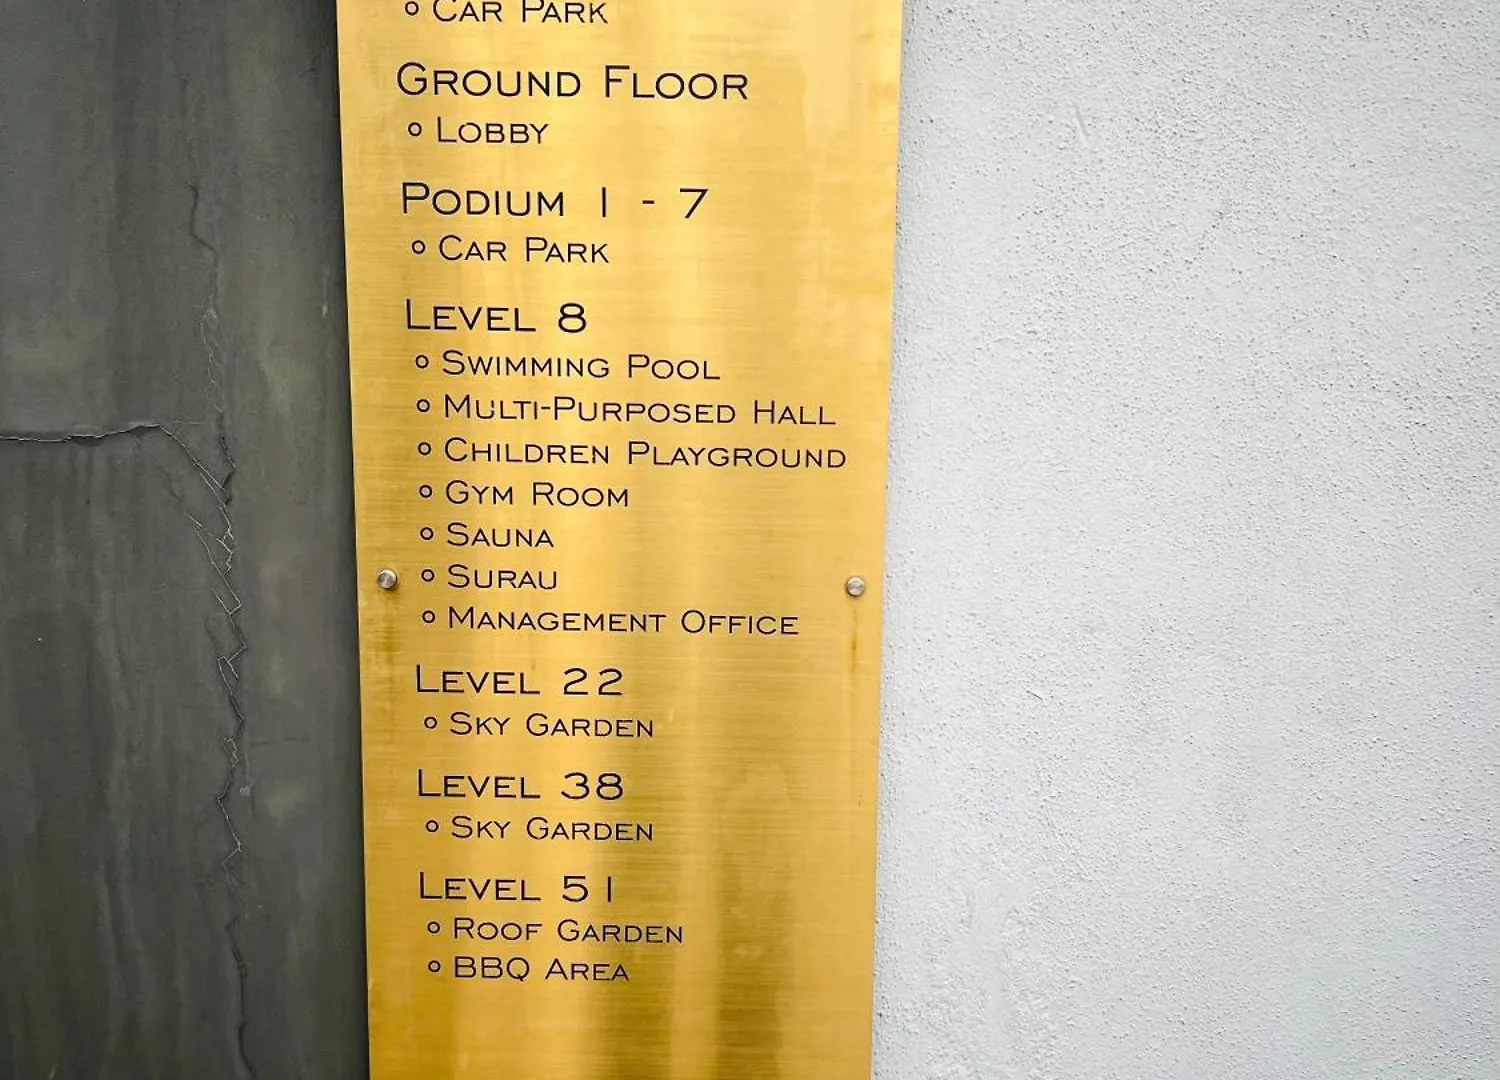 ○ Car Park
Ground Floor
○ Lobby
Podium 1 - 7
○ Car Park
Level 8
○ Swimming Pool
○ Multi-Purposed Hall
○ Children Playground
○ Gym Room
○ Sauna
○ Surau
○ Management Office
Level 22
○ Sky Garden
Level 38
○ Sky Garden
Level 51
○ Roof Garden
○ BBQ Area